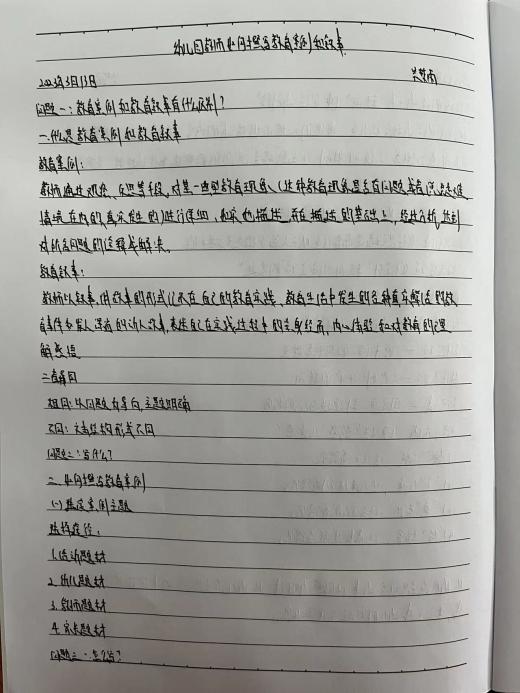 幼儿园教师如何撰写教育案例和叙事
2023年3月13日
问题一:教育案例和教育叙事有什么区别?
一.什么是教育案例和教育叙事
教育案例:
教师通过观察、反思等手段,对某一典型教育现象(这种教育现象是否有问题或者
情境在内的真实发生的)进行详细、和描述,而在描述的基础上,经过分析,达到
对所言问题的诠释或解决。
教育叙事:
教师以叙事、讲故事的形式记录在自己的教育实践、教育生活中发生的各种真实鲜活的教
育事件和发人深省的动人故事,表述自己在实践过程中的亲身经历、内心体验和对教育的理
解感悟
二者异同
相同:以问题为导向,主题明确
不同:文章结构形式不同
问题二:写什么?
二.如何撰写教育案例
(一)
选择途径:
1.活动题材
2.幼儿题材
3.教师题材
4.家长题材
问题三:怎么写?